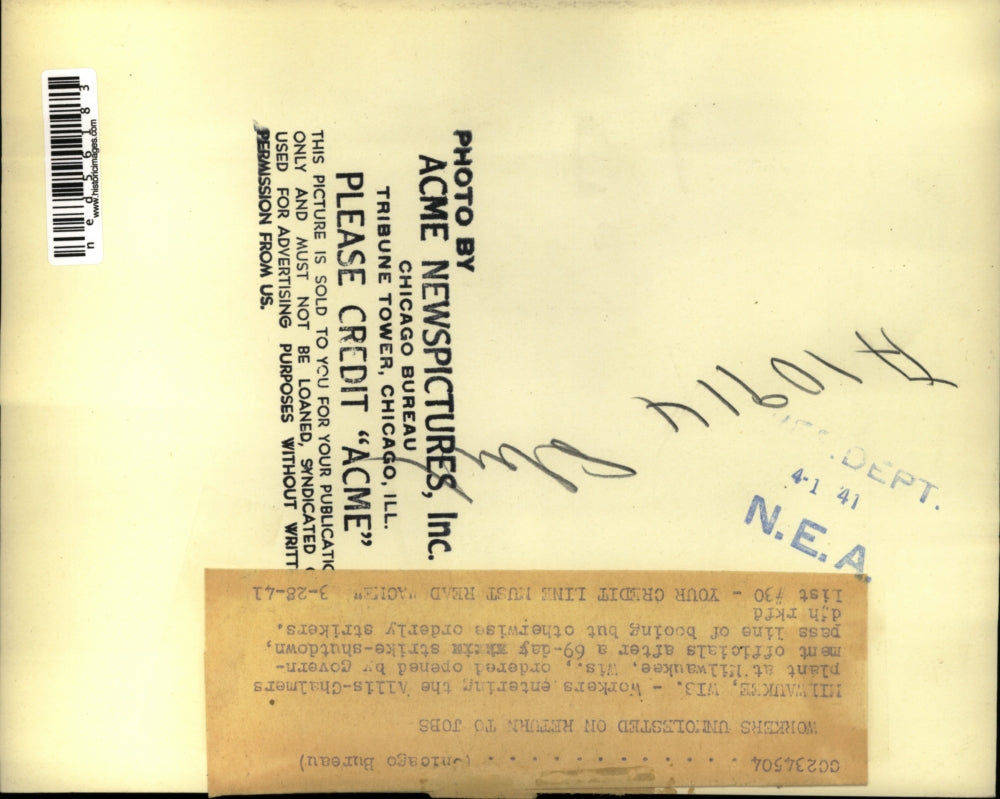 CC234504 . . . . . . . . . . . . . (Chicago Bureau)
WORKERS UNMOLESTED ON RETURN TO JOBS
MILWAUKEE, WIS. - Workers entering the Allis-Chalmers
plant at Milwaukee, Wis., ordered opened by govern-
ment officials after a 69-day strike-shutdown,
pass line of booing but otherwise orderly strikers.
djh rkfd
List #30 - YOUR CREDIT LINE MUST READ "ACME" 3-28-41
PHOTO BY
ACME NEWSPICTURES, Inc.
CHICAGO BUREAU
TRIBUNE TOWER, CHICAGO, ILL.
PLEASE CREDIT “ACME”
THIS PICTURE IS SOLD TO YOU FOR YOUR PUBLICATIO
ONLY AND MUST NOT BE LOANED, SYNDICATED O
USED FOR ADVERTISING PURPOSES WITHOUT WRITT
PERMISSION FROM US.
A 10914
DEPT.
4-1 '41
N.E.A.
www.historicimages.com
ned59183